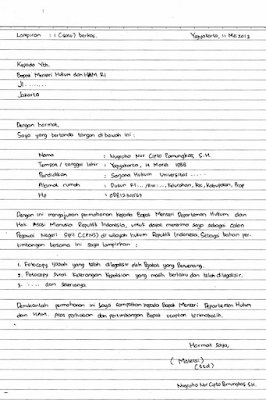 Lampiran : 1 (satu) berkas. Yogyakarta, 11 Mei 2012
Kepada Yth.
Bapak Menteri Hukum dan HAM RI
Jl. ........
Jakarta
Dengan hormat,
Saya yang bertanda tangan di bawah ini :
Nama : Nugroho Nur Cipto Pamungkas, S.H.
Tempat / tanggal lahir : Yogyakarta, 14 Maret 1988
Pendidikan : Sarjana Hukum Universitas .....
Alamat rumah : Dusun RT.../RW..., Kelurahan, Kec, Kabupaten, Prop
Hp :
Dengan ini mengajukan permohonan kepada Bapak Menteri Departemen Hukum dan
Hak Asasi Manusia Republik Indonesia, untuk dapat menerima saya sebagai Calon
Pegawai Negeri Sipil (CPNS) di wilayah hukum Republik Indonesia. Sebagai bahan per-
timbangan bersama ini saya lampirkan :
1. Fotocopy Ijazah yang telah dilegalisir oleh Pejabat yang Berwenang.
2. Fotocopy Surat Keterangan Kepolisian yang masih berlaku dan telah dilegalisir.
3. ..... dan seterusnya.
Demikianlah permohonan ini saya sampaikan kepada Bapak Menteri Departemen Hukum
dan HAM. Atas perhatian dan pertimbangan Bapak ucapkan terimakasih.
Hormat Saya,
( Materai )
( ttd )
Nugroho Nur Cipto Pamungkas